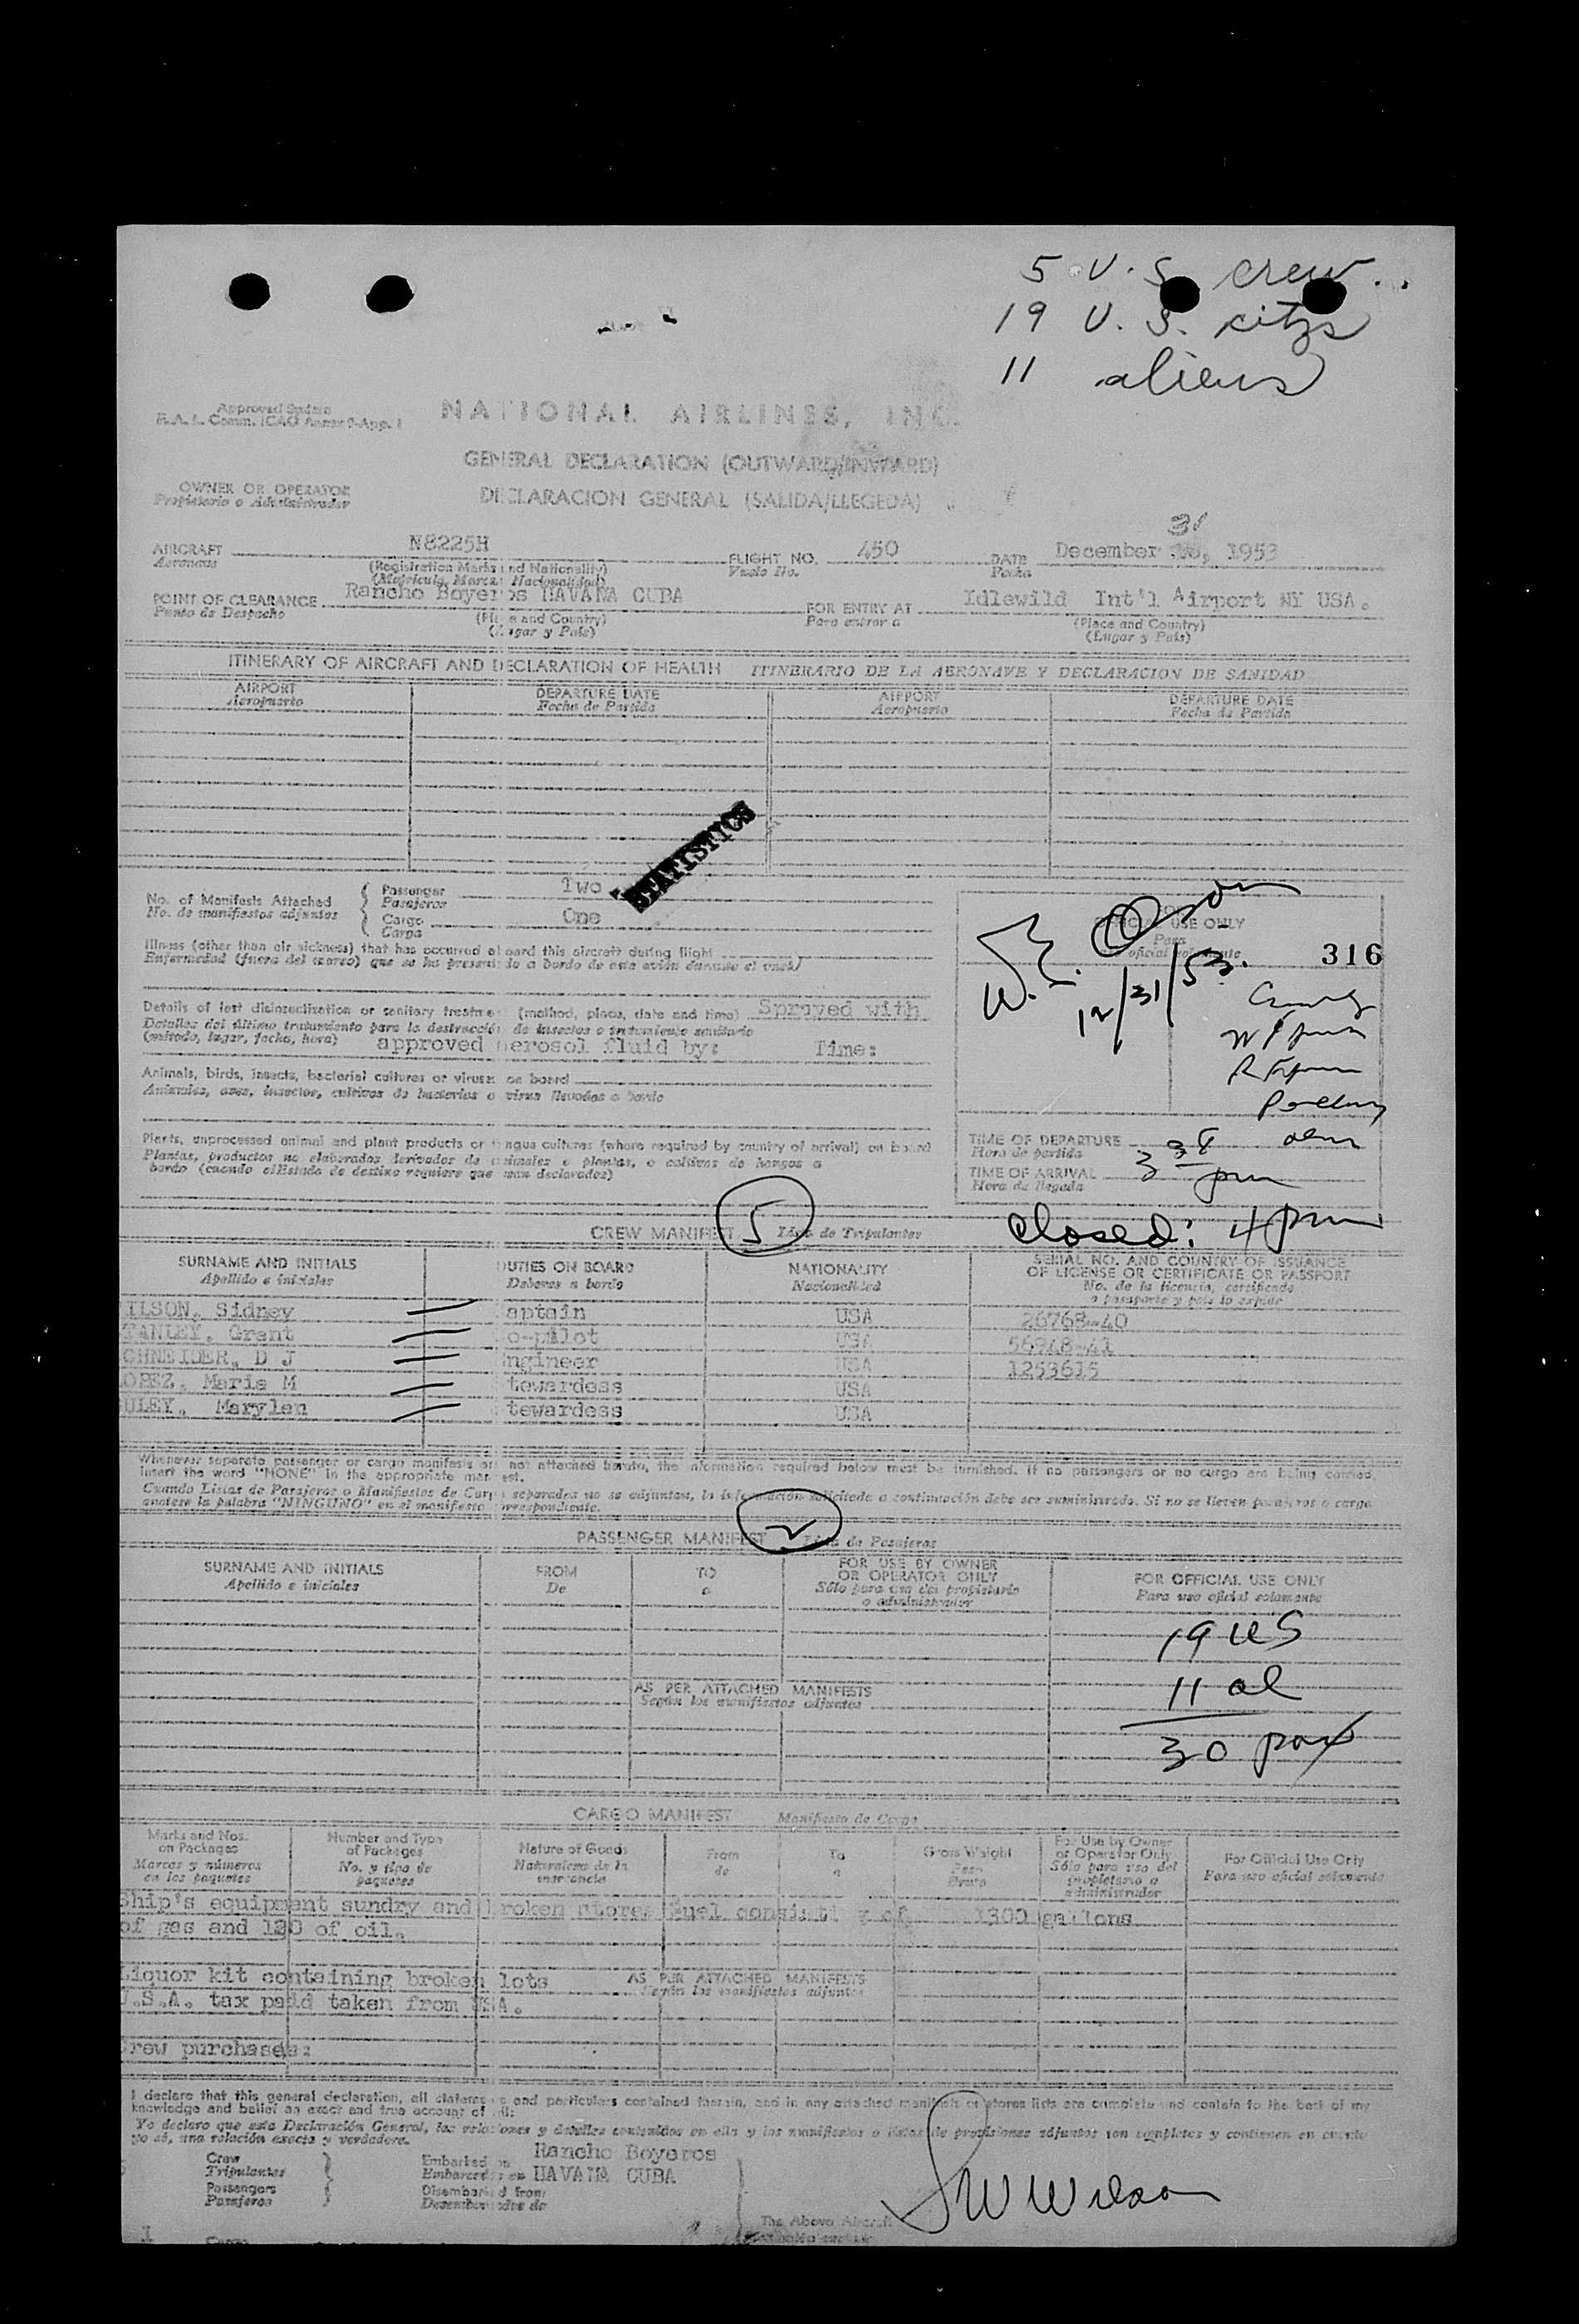 5 U.S. crew
19 U.S. citzs
11 aliens
Approved Under
NATIONAL AIRLINES, INC.
GENERAL DECLARATION (OUTWARD/INWARD)
OWNER OR OPERATOR
DECLARACION GENERAL (SALIDA/LLEGEDA)
31
AIRCRAFT N8225H FLIGHT NO. 450 DATE December 1953
Aeronave (Registration Marks and Nationality) Vuelo No. Fecha
POINT OF CLEARANCE Rancho Boyeros HAVANA CUBA FOR ENTRY AT Idlewild Int'l Airport NY USA.
Punto de Despacho (Place and Country) Para entrar a (Place and Country)
(Lugar y País) (Lugar y País)
ITINERARY OF AIRCRAFT AND DECLARATION OF HEALTH ITINERARIO DE LA AERONAVE Y DECLARACION DE SANIDAD
AIRPORT DEPARTURE DATE AIRPORT DEPARTURE DATE
Aeropuerto Fecha de Partida Aeropuerto Fecha de Partida
STATISTICS
No. of Manifests Attached Passenger Two
No. de manifiestos adjuntos Pasajeros
Cargo One
Carga
Illness (other than air sickness) that has occurred aboard this aircraft during flight
Enfermedad (fuera del mareo) que se ha presentado a bordo de este avión durante el vuelo
W.E. Olson
12/31/53.
OFFICIAL USE ONLY
316
Details of last disinsectization or sanitary treatment (method, place, date and time) Sprayed with
Detalles del último tratamiento para la destrucción de insectos o tratamiento sanitario
(método, lugar, fecha, hora) approved aerosol fluid by: Time:
Animals, birds, insects, bacterial cultures or viruses on board
Animales, aves, insectos, cultivos de bacterias o virus llevados a bordo
Plants, unprocessed animal and plant products or fungus cultures (where required by country of arrival) on board
Plantas, productos no elaborados derivados de animales o plantas, o cultivos de hongos a
bordo (cuando el Estado de destino requiere que sean declarados)
TIME OF DEPARTURE
Hora de partida
TIME OF ARRIVAL 3 38 pm
Hora de llegada
closed: 4 pm
CREW MANIFEST 5 Lista de Tripulantes
SURNAME AND INITIALS DUTIES ON BOARD NATIONALITY SERIAL NO. AND COUNTRY OF ISSUANCE
Apellido e iniciales Deberes a bordo Nacionalidad OF LICENSE OR CERTIFICATE OR PASSPORT
No. de la licencia, certificado
o pasaporte y país lo expide
ILSON, Sidney aptain USA 26768-40
TANLEY, Grant o-pilot USA 56948-41
CHNEIDER, D J ngineer USA 1253615
OPEZ, Marie M tewardess USA
ULEY, Marylen tewardess USA
Whenever separate passenger or cargo manifests are not attached hereto, the information required below must be furnished. If no passengers or no cargo are being carried,
insert the word "NONE" in the appropriate manifest.
Cuando Listas de Pasajeros o Manifiestos de Carga separados no se adjuntan, la información solicitada a continuación debe ser suministrada. Si no se lleven pasajeros o carga
anótese la palabra "NINGUNO" en el manifiesto correspondiente.
PASSENGER MANIFEST 2 Lista de Pasajeros
SURNAME AND INITIALS FROM TO FOR USE BY OWNER OR OPERATOR ONLY FOR OFFICIAL USE ONLY
Apellido e iniciales De a Sólo para uso del propietario o administrador Para uso oficial solamente
19 US
11 al
30 pax
AS PER ATTACHED MANIFESTS
Según los manifiestos adjuntos
CARGO MANIFEST Manifiesto de Carga
Marks and Nos. on Packages Number and Type of Packages Nature of Goods From To Gross Weight For Use by Owner or Operator Only For Official Use Only
Marcas y números en los paquetes No. y tipo de paquetes Naturaleza de la mercancia de a Peso Bruto Sólo para uso del propietario o administrador Para uso oficial solamente
Ship's equipment sundry and broken stores Fuel consisti g of 1300 gallons
of gas and 120 of oil.
Liquor kit containing broken lots
U.S.A. tax paid taken from USA.
AS PER ATTACHED MANIFESTS
Según los manifiestos adjuntos
rew purchases:
I declare that this general declaration, all statements and particulars contained therein, and in any attached manifests or stores lists are complete and contain to the best of my
knowledge and belief an exact and true account of all:
Yo declaro que esta Declaración General, las relaciones y detalles contenidos en ella y los manifiestos o listas de provisiones adjuntos son completos y contienen en cuanto
yo sé, una relación exacta y verdadera.
Crew Embarked in Rancho Boyeros
Tripulantes Embarcados en HAVANA CUBA
Passengers Disembarked from
Pasajeros Desembarcados de
SW Wilson
The Above Aircraft
Cargo